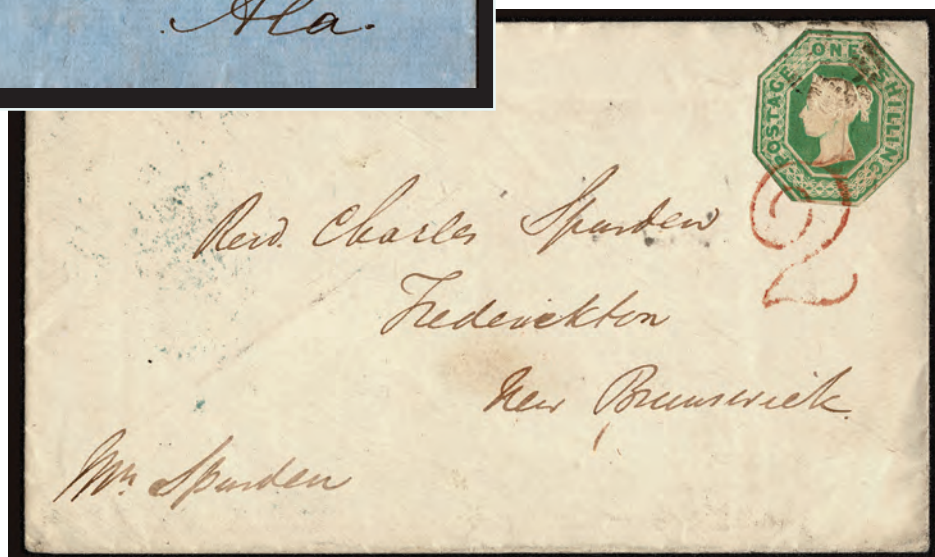 Ala.
POSTAGE ONE SHILLING
2
Revd. Charles Spurden
Frederickton
New Brunswick
Mr. Spurden